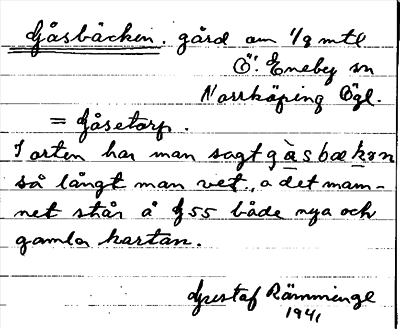 Gåsbäcken. gård om 1/8 mtl
Ö. Eneby sn
Norrköping Ögl.
= Gåsetorp.
I orten har man sagt gàsbækøn
så långt man vet, o det nam-
net står å G55 både nya och
gamla kartan.
Gustaf Rämminge
1941